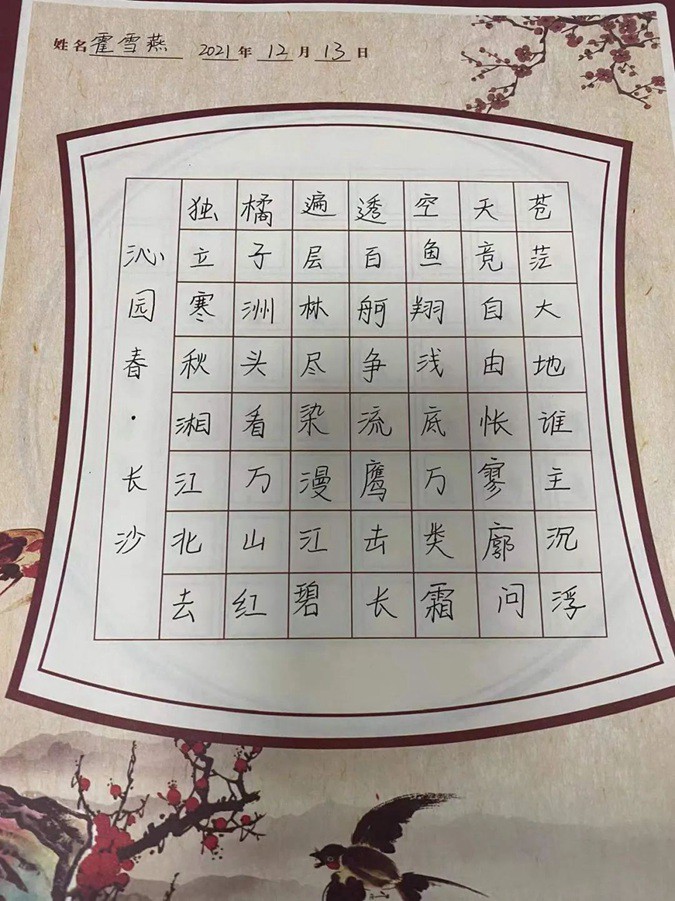 姓名霍雪燕 2021年12月13日
沁园春·长沙
独立寒秋湘江北去
橘子洲头看万山红
遍层林尽染漫江碧
透百舸争流鹰击长
空鱼翔浅底万类霜
天竞自由怅寥廓问
苍茫大地谁主沉浮